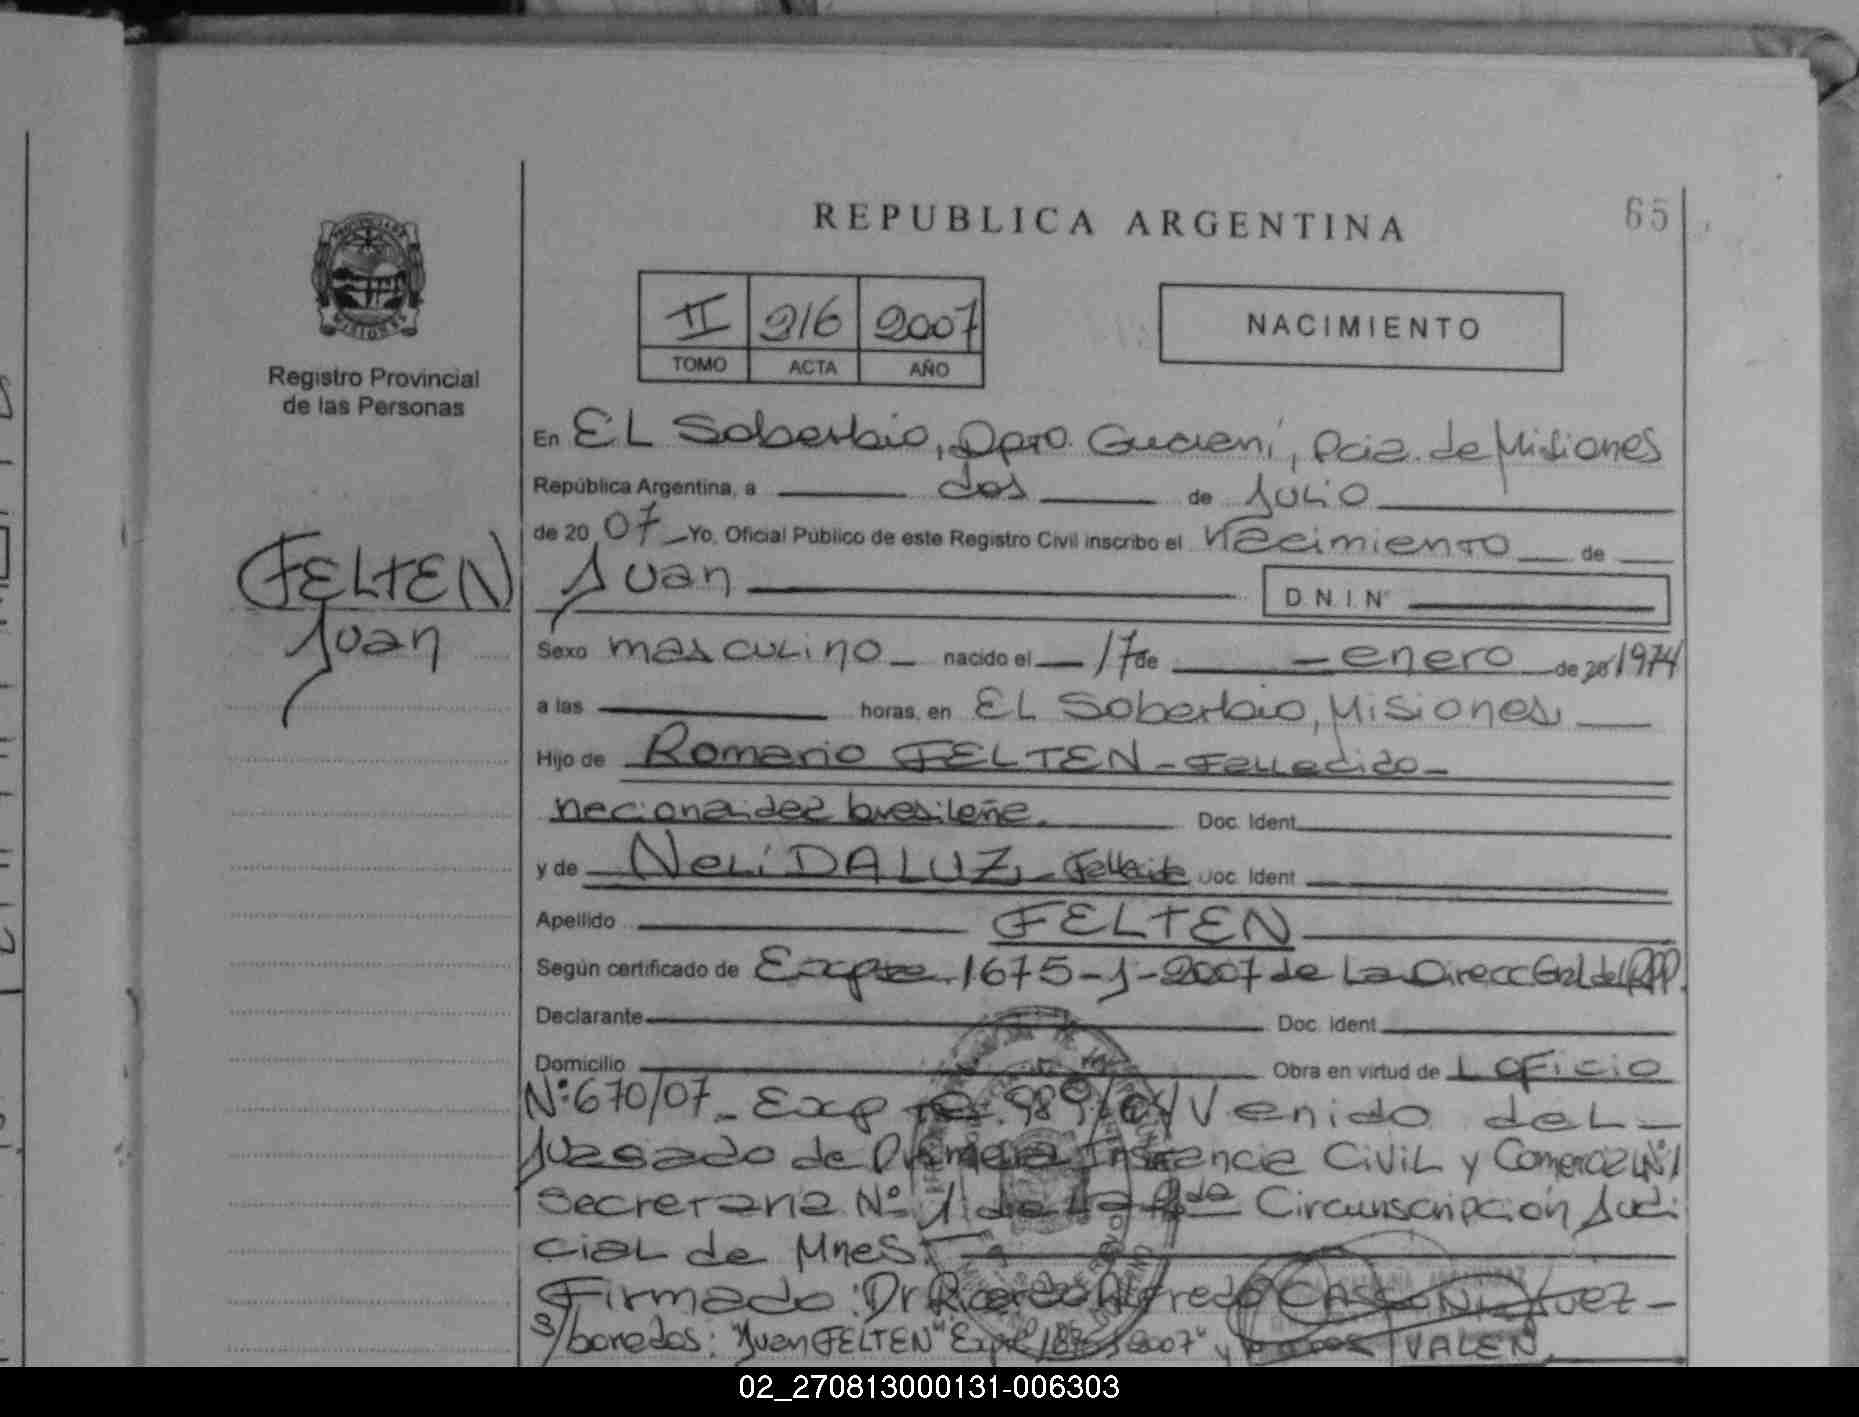 REPUBLICA ARGENTINA
65
II 216 2007
TOMO ACTA AÑO
NACIMIENTO
PROVINCIA DE
MISIONES
Registro Provincial
de las Personas
FELTEN
Juan
En EL Soberbio, Dpto. Guarani, Pcia. de Misiones
República Argentina, a dos de Julio
de 20 07 Yo, Oficial Público de este Registro Civil inscribo el Nacimiento de
Juan D.N.I. Nº
Sexo masculino nacido el 17 de enero de 20 1974
a las horas, en EL Soberbio, Misiones
Hijo de Romario FELTEN - Fallecido -
nacionalidad brasileña. Doc. Ident.
y de Neli DA LUZ - Fallecida Doc. Ident
Apellido FELTEN
Según certificado de Expte 1675-J-2007 de La Direcc Gral del RPP.
Declarante Doc. Ident
Domicilio Obra en virtud de L Oficio
Nº 670/07 - Expte. 989/ Venido del
Juzgado de Primera Instancia Civil y Comercial Nº 1
Secretaria Nº 1 de la 2da Circunscripción Judi
cial de Mnes.
Firmado: Dr Ricardo Alfredo CASSONI - Juez -
s/borrados: "Juan FELTEN" Expte 2007" y VALEN
02_270813000131-006303